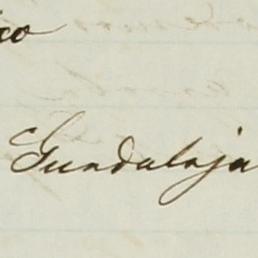 ico
Guadalaja